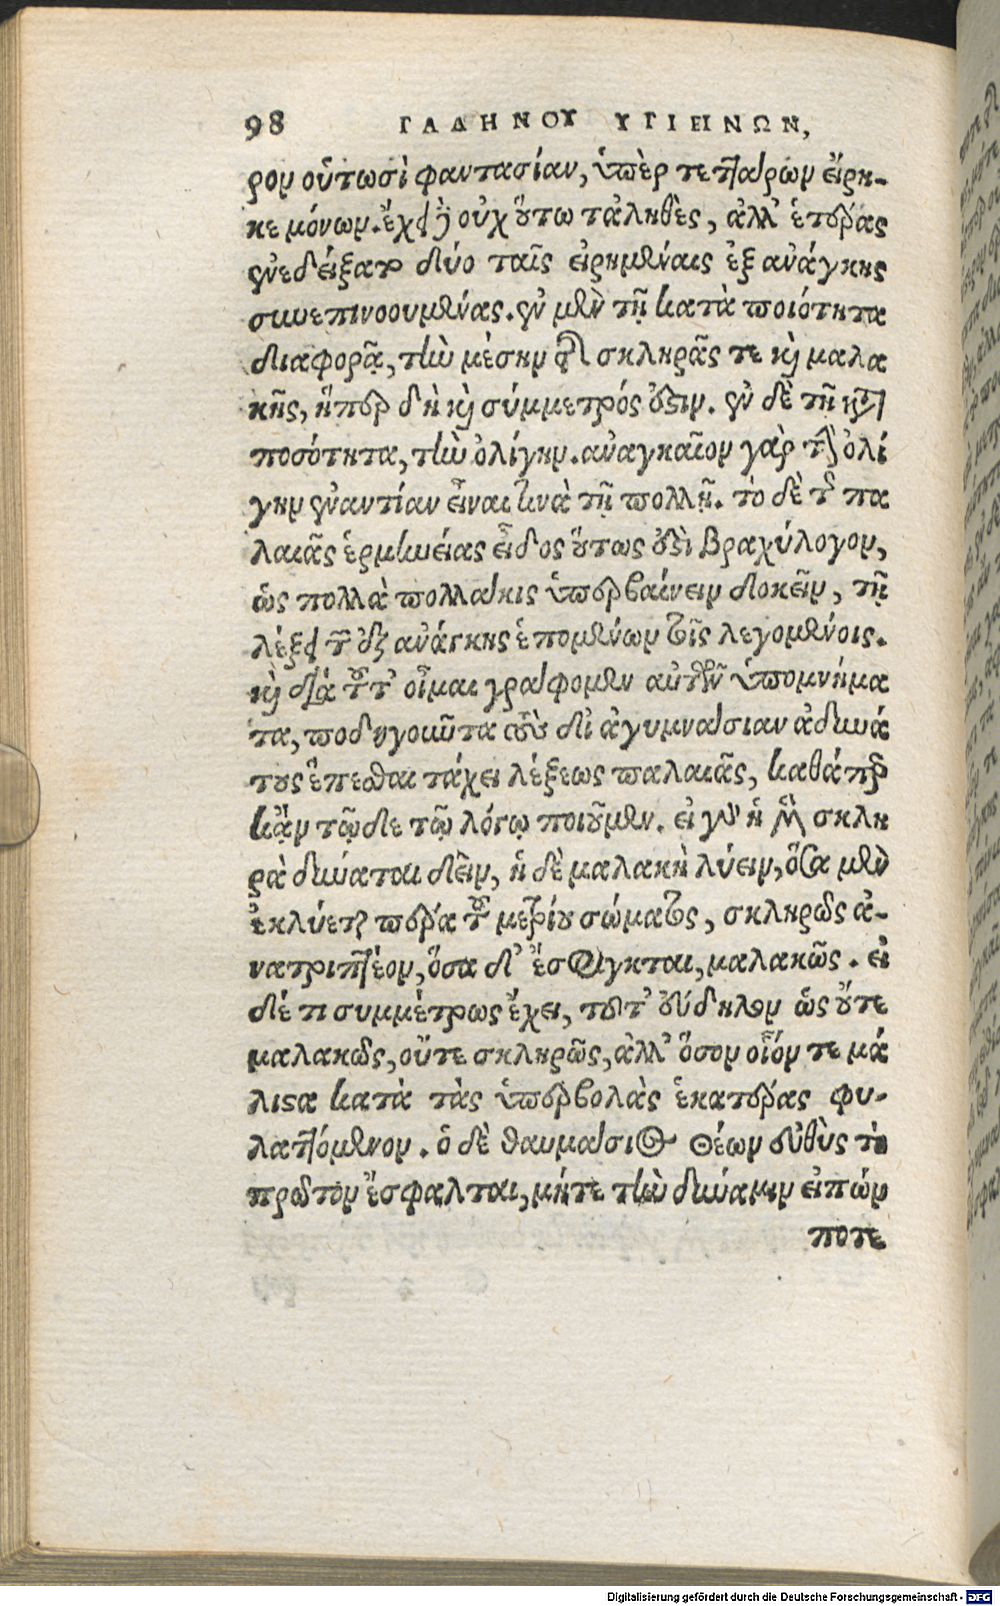 98 ΓΑΛΗΝΟΥ ΥΓΙΕΙΝΩΝ,
ρον οὑτωσὶ φαντασίαν, ὑπὲρ τεττάρων εἴρη-
κε μόνων. ἔχει δ' οὐχ οὕτω τἀληθὲς, ἀλλ' ἑτέρας
ἐνεδείξατο δύο ταῖς εἰρημέναις ἐξ ἀνάγκης
συνεπινοουμένας. ἐν μὲν τῇ κατὰ ποιότητα
διαφορᾷ, τὴν μέσην τῆς σκληρᾶς τε καὶ μαλα
κῆς, ἥπερ δὴ καὶ σύμμετρός ἐστιν. ἐν δὲ τῇ κατὰ
ποσότητα, τὴν ὀλίγην. ἀναγκαῖον γὰρ τὴν ὀλί
γην ἐναντίαν εἶναι τινὰ τῇ πολλῇ. τὸ δὲ τῆς πα
λαιᾶς ἑρμηνείας εἶδος οὕτως ἐστὶ βραχύλογον,
ὡς πολλὰ πολλάκις ὑπερβαίνειν δοκεῖν, τῇ
λέξει τῶν ἐξ ἀνάγκης ἑπομένων τοῖς λεγομένοις.
καὶ διὰ τοῦτ' οἶμαι γράφομεν αὐτῶν ὑπομνήμα
τα, ποδηγοῦντα τοὺς δι' ἀγυμνασίαν ἀδυνά
τους ἕπεσθαι τάχει λέξεως παλαιᾶς, καθάπερ
κἀν τῷδε τῷ λόγῳ ποιοῦμεν. εἰ γὰρ ἡ μὲν σκλη
ρὰ δύναται δεῖν, ἡ δὲ μαλακὴ λύειν, ὅσα μὲν
ἐκλύεται πέρα τοῦ μετρίου σώματος, σκληρῶς ἀ-
νατριπτέον, ὅσα δ' ἔσφιγκται, μαλακῶς. εἰ
δέ τι συμμέτρως ἔχει, τοῦτ' εὔδηλον ὡς οὔτε
μαλακῶς, οὔτε σκληρῶς, ἀλλ' ὅσον οἷόν τε μά
λιστα κατὰ τὰς ὑπερβολὰς ἑκατέρας φυ-
λαττόμενον. ὁ δὲ θαυμάσιος Θέων εὐθὺς τὸ
πρῶτον ἔσφαλται, μήτε τὴν δύναμιν εἰπών
ποτε
Digitalisierung gefördert durch die Deutsche Forschungsgemeinschaft - DFG